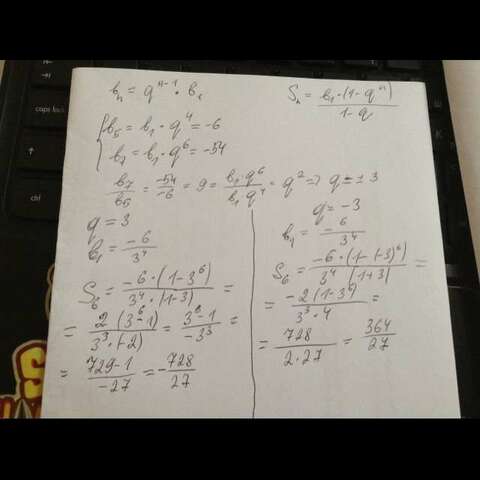 bₙ = qⁿ⁻¹ · b₁
Sₙ = b₁·(1-qⁿ) / 1-q
{ b₅ = b₁ · q⁴ = -6
b₇ = b₁ · q⁶ = -54
b₇/b₅ = -54/-6 = 9 = b₁·q⁶ / b₁ q⁴ = q² => q = ±3
q = 3
b₁ = -6/3⁴
S₆ = -6·(1-3⁶) / 3⁴·(1-3) =
= 2 (3⁶-1) / 3³·(-2) = 3⁶-1 / -3³ =
= 729-1 / -27 = -728/27
q = -3
b₁ = -6/3⁴
S₆ = -6·(1-(-3)⁶) / 3⁴ (1+3) =
= -2(1-3⁶) / 3³·4 =
= 728 / 2·27 = 364/27
caps lock
shift